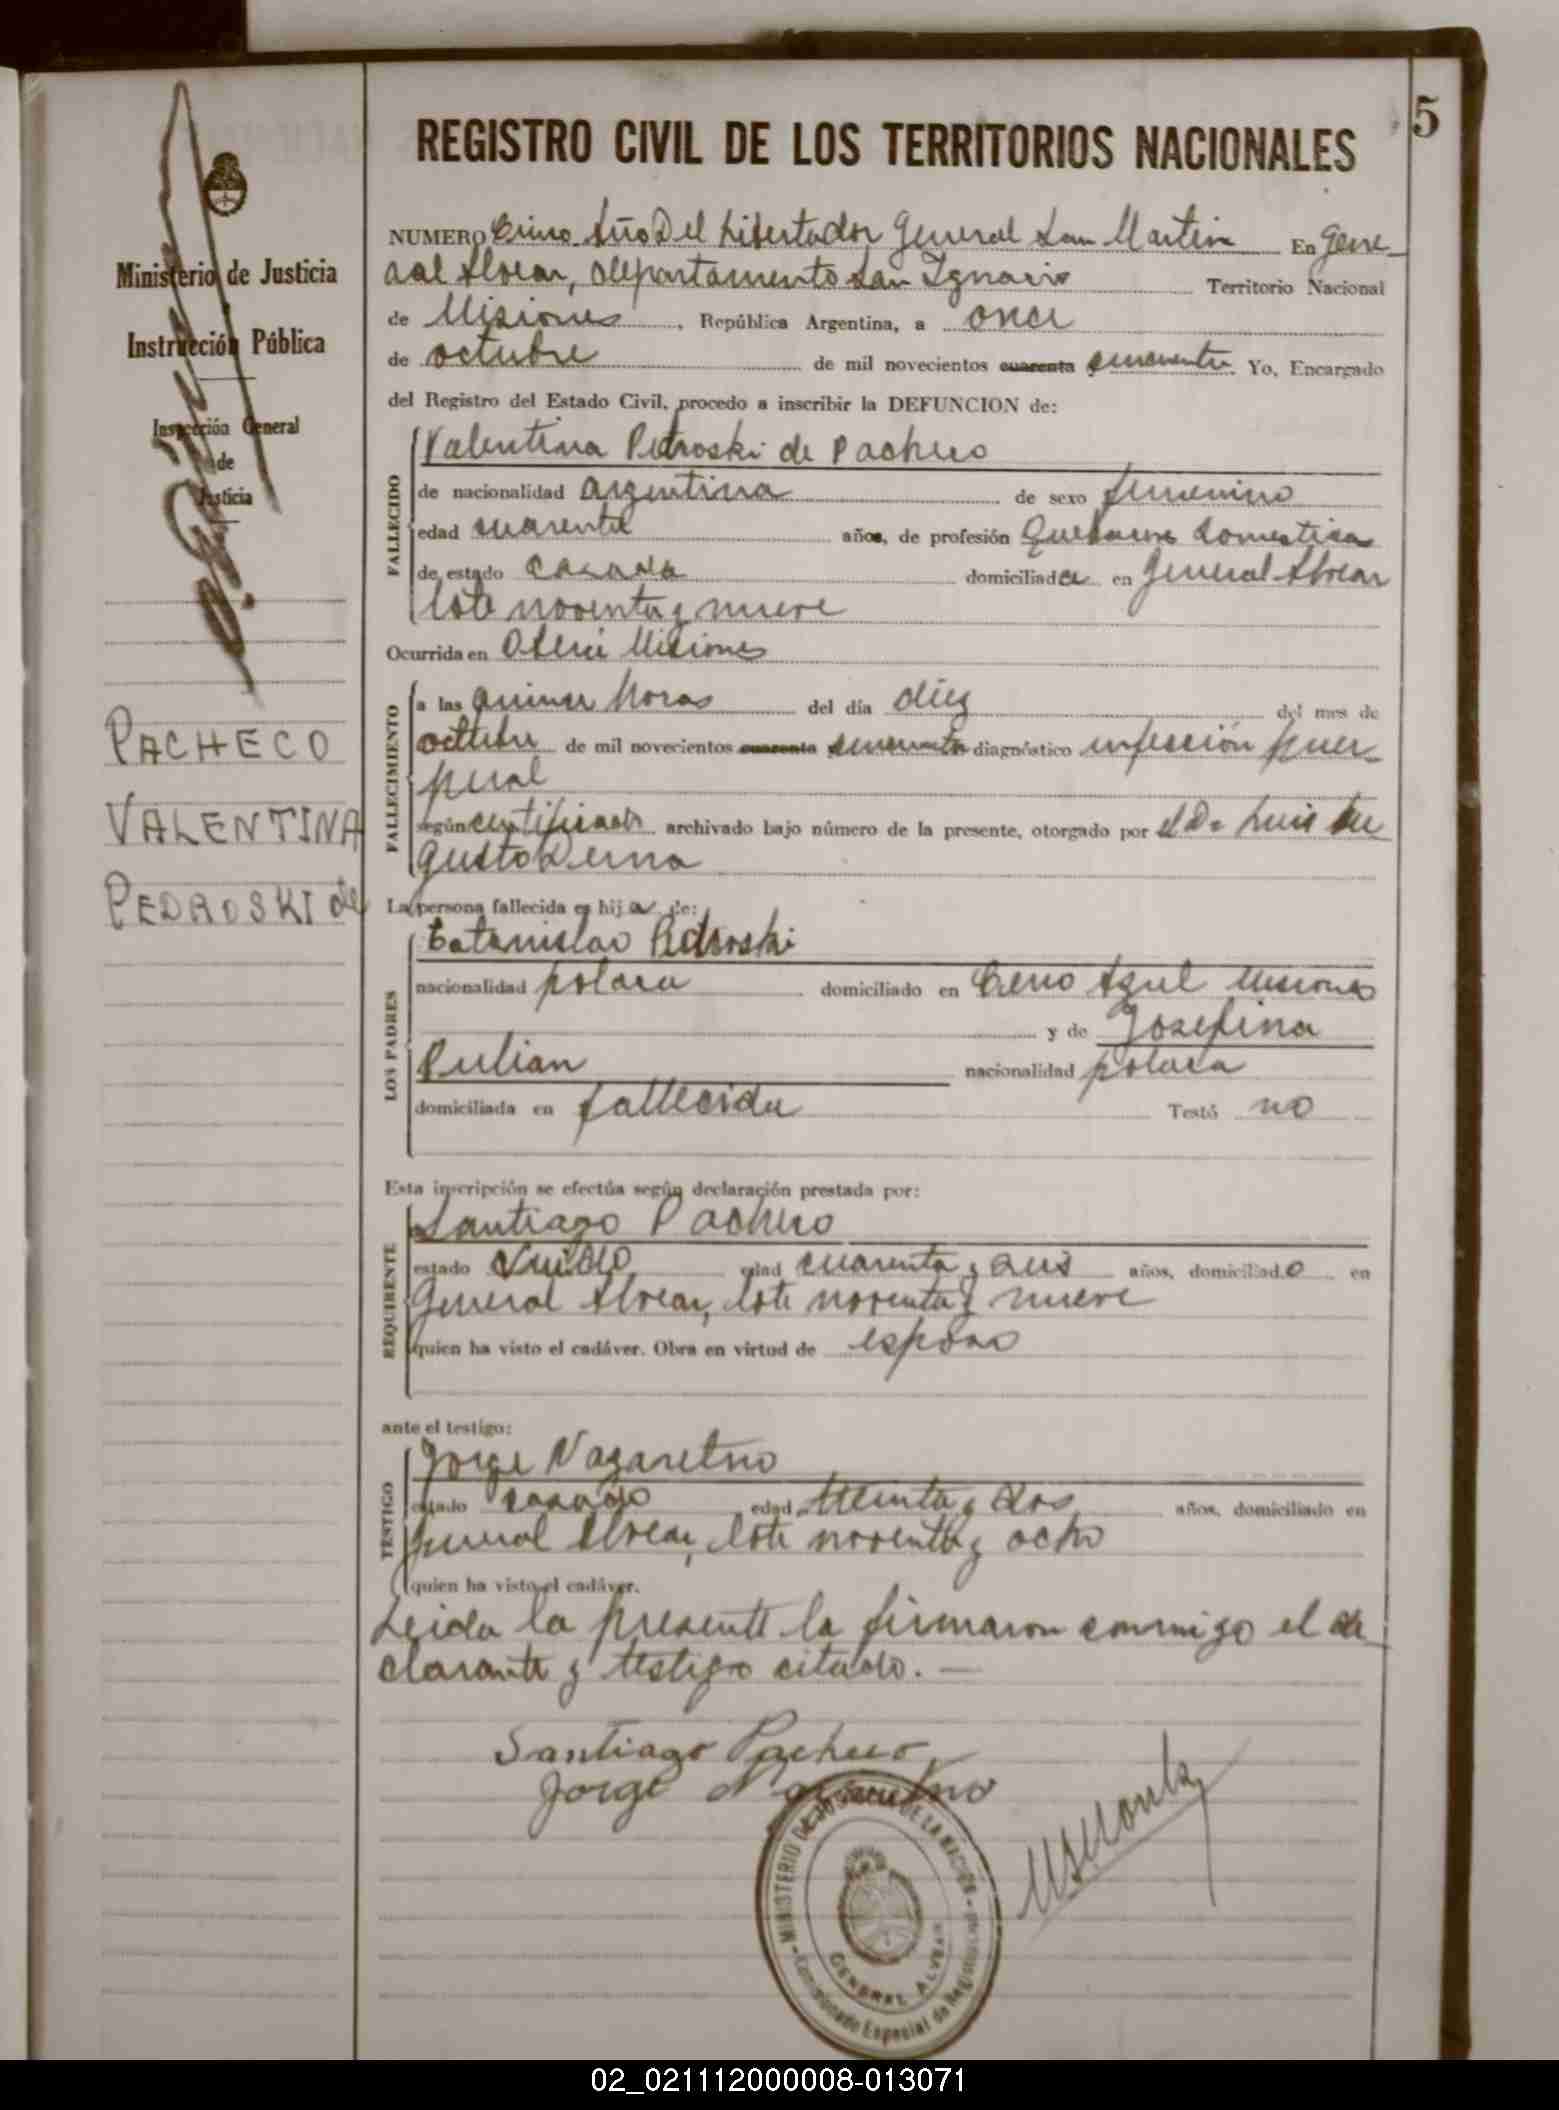 5
REGISTRO CIVIL DE LOS TERRITORIOS NACIONALES
Ministerio de Justicia
Instrucción Pública
Inspección General
de
Justicia
PACHECO
VALENTINA
PEDROSKI de
NUMERO Cinco Año Del Libertador General San Martin En Gene
ral Alvear, Departamento San Ignacio Territorio Nacional
de Misiones, República Argentina, a once
de octubre de mil novecientos cuarenta cincuenta Yo, Encargado
del Registro del Estado Civil, procedo a inscribir la DEFUNCION de:
FALLECIDO
Valentina Pedroski de Pacheco
de nacionalidad argentina de sexo femenino
edad cuarenta años, de profesión Quehaceres Domesticos
de estado casada domiciliada en General Alvear
lote noventa y nueve
Ocurrida en Oberá Misiones
FALLECIMIENTO
a las quince horas del día diez del mes de
octubre de mil novecientos cuarenta cincuenta diagnóstico infección puer-
peral
según certificado archivado bajo número de la presente, otorgado por el Dr Luis Au
gusto Derna
La persona fallecida es hija de:
LOS PADRES
Estanislao Pedroski
nacionalidad polaca domiciliado en Cerro Azul Misiones
y de Josefina
Pulian nacionalidad polaca
domiciliada en fallecida Testó no
Esta inscripción se efectúa según declaración prestada por:
REQUIRENTE
Santiago Pacheco
estado Viudo edad cuarenta y seis años, domiciliado en
General Alvear, lote noventa y nueve
quien ha visto el cadáver. Obra en virtud de esposo
ante el testigo:
TESTIGO
Jorge Nazaretno
estado casado edad treinta y dos años, domiciliado en
General Alvear, lote noventa y ocho
quien ha visto el cadáver.
Leida la presente la firmaron conmigo el de
clarante y testigo citado. —
Santiago Pacheco
Jorge Nazaretno
MINISTERIO DE JUSTICIA DE LA NACIÓN
GENERAL ALVEAR
02_021112000008-013071